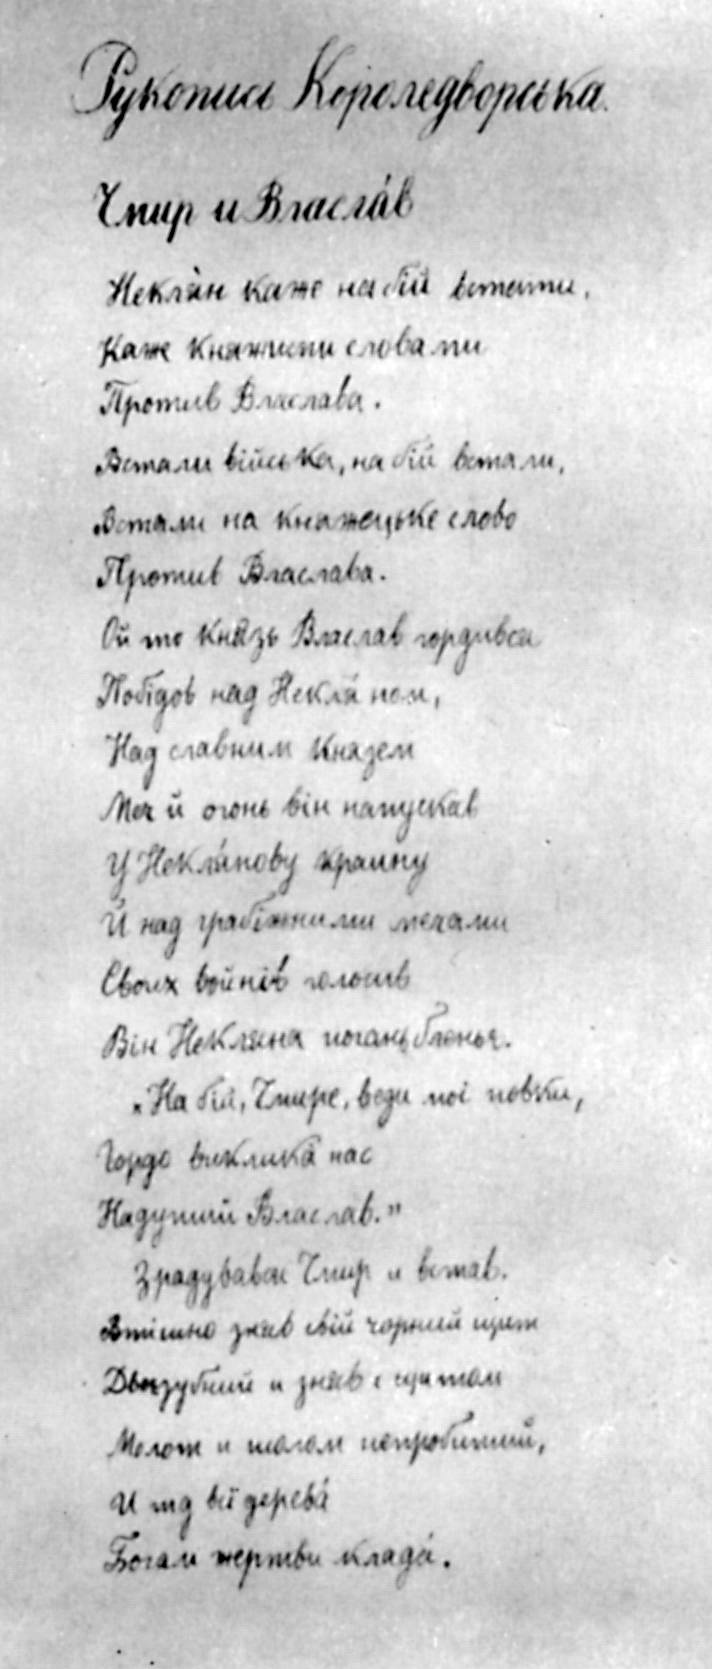 Рукопись Короледворська.
Чмир и Власла́в
Некля̀н каже на бій встати,
Каже княжими словами
Против Власлава.
Встали війська, на бій встали,
Встали на княжецьке слово
Против Власлава.
Ой то князь Власлав гордився
Побідов над Некля́ном,
Над славним князем
Меч й огонь він напускав
У Некля́нову краину
Й над грабіжними мечами
Своих войнів голосив
Він Некляна
„На бій, Чмире, веди мої повки,
Гордо виклика̂ нас
Надутий Власлав.”
Зрадувався Чмир и встав.
Втішно зняв свій чорний щит
Двузубний и зняв с щитом
Молот и шолом непробитий,
И під всі дерева́
Богам жертви клада́.